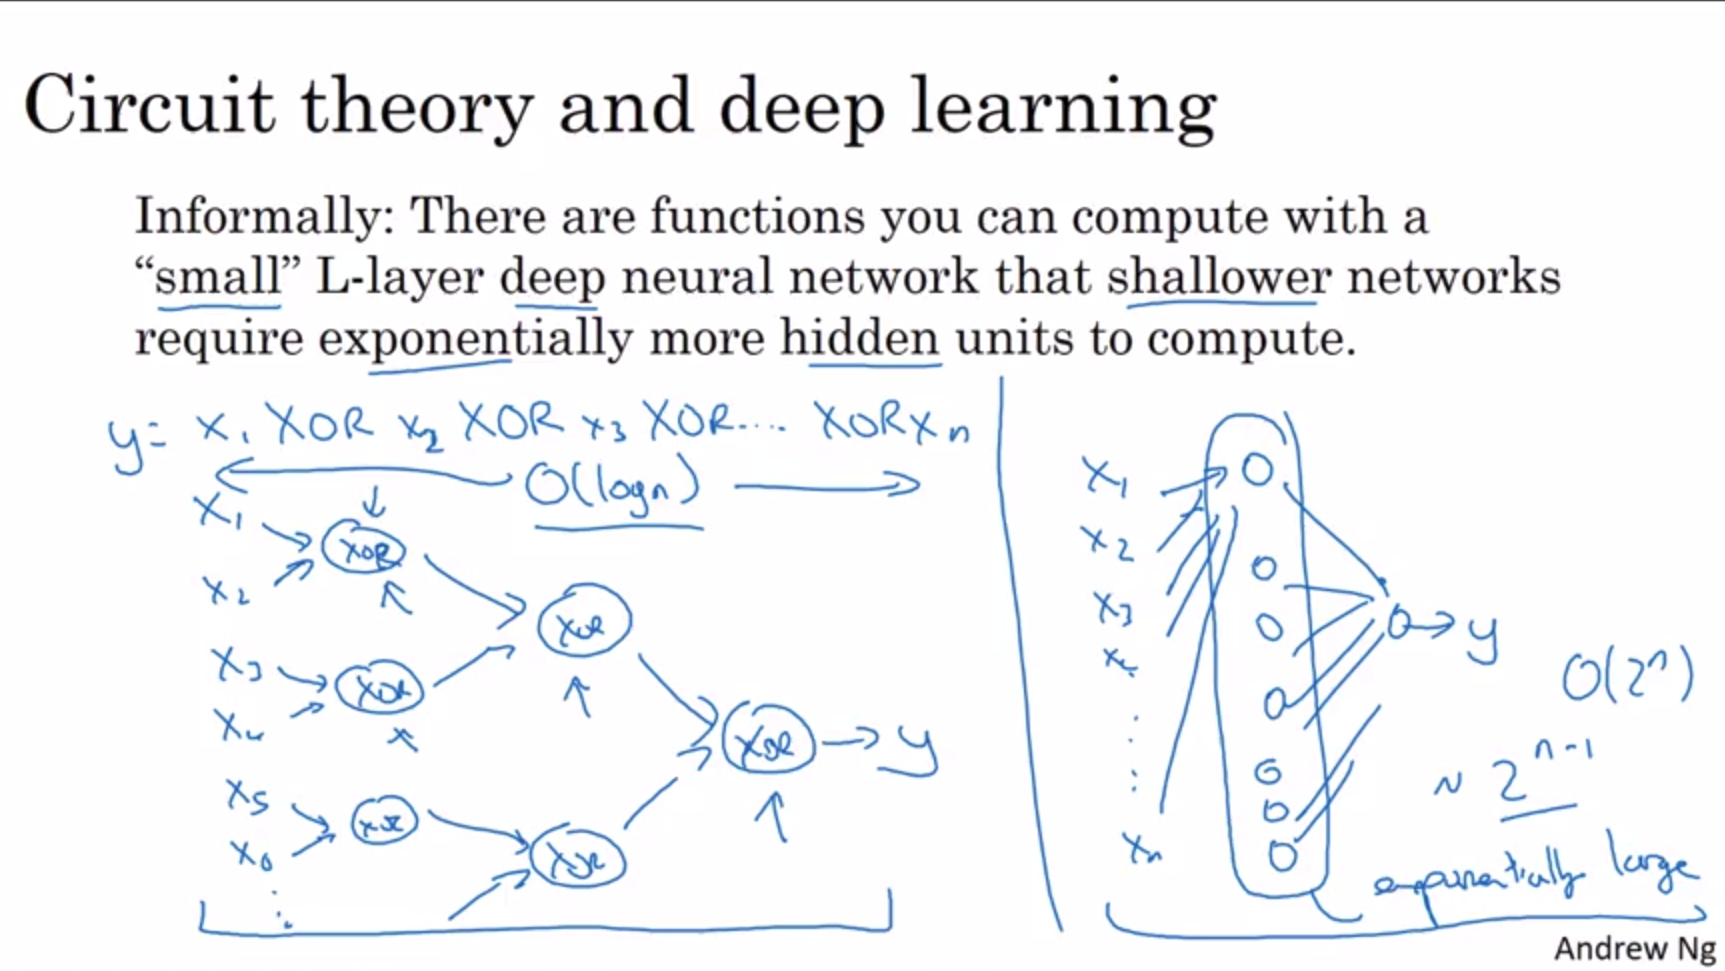 Circuit theory and deep learning
Informally: There are functions you can compute with a
“small” L-layer deep neural network that shallower networks
require exponentially more hidden units to compute.
y= x1 XOR x2 XOR x3 XOR.... XOR xn
O(log n)
x1
XOR
x2
XOR
x3
XOR
x4
XOR
y
x5
XOR
x6
XOR
x1
x2
x3
x4
xn
y
O(2^n)
~ 2^n-1
exponentially large
Andrew Ng